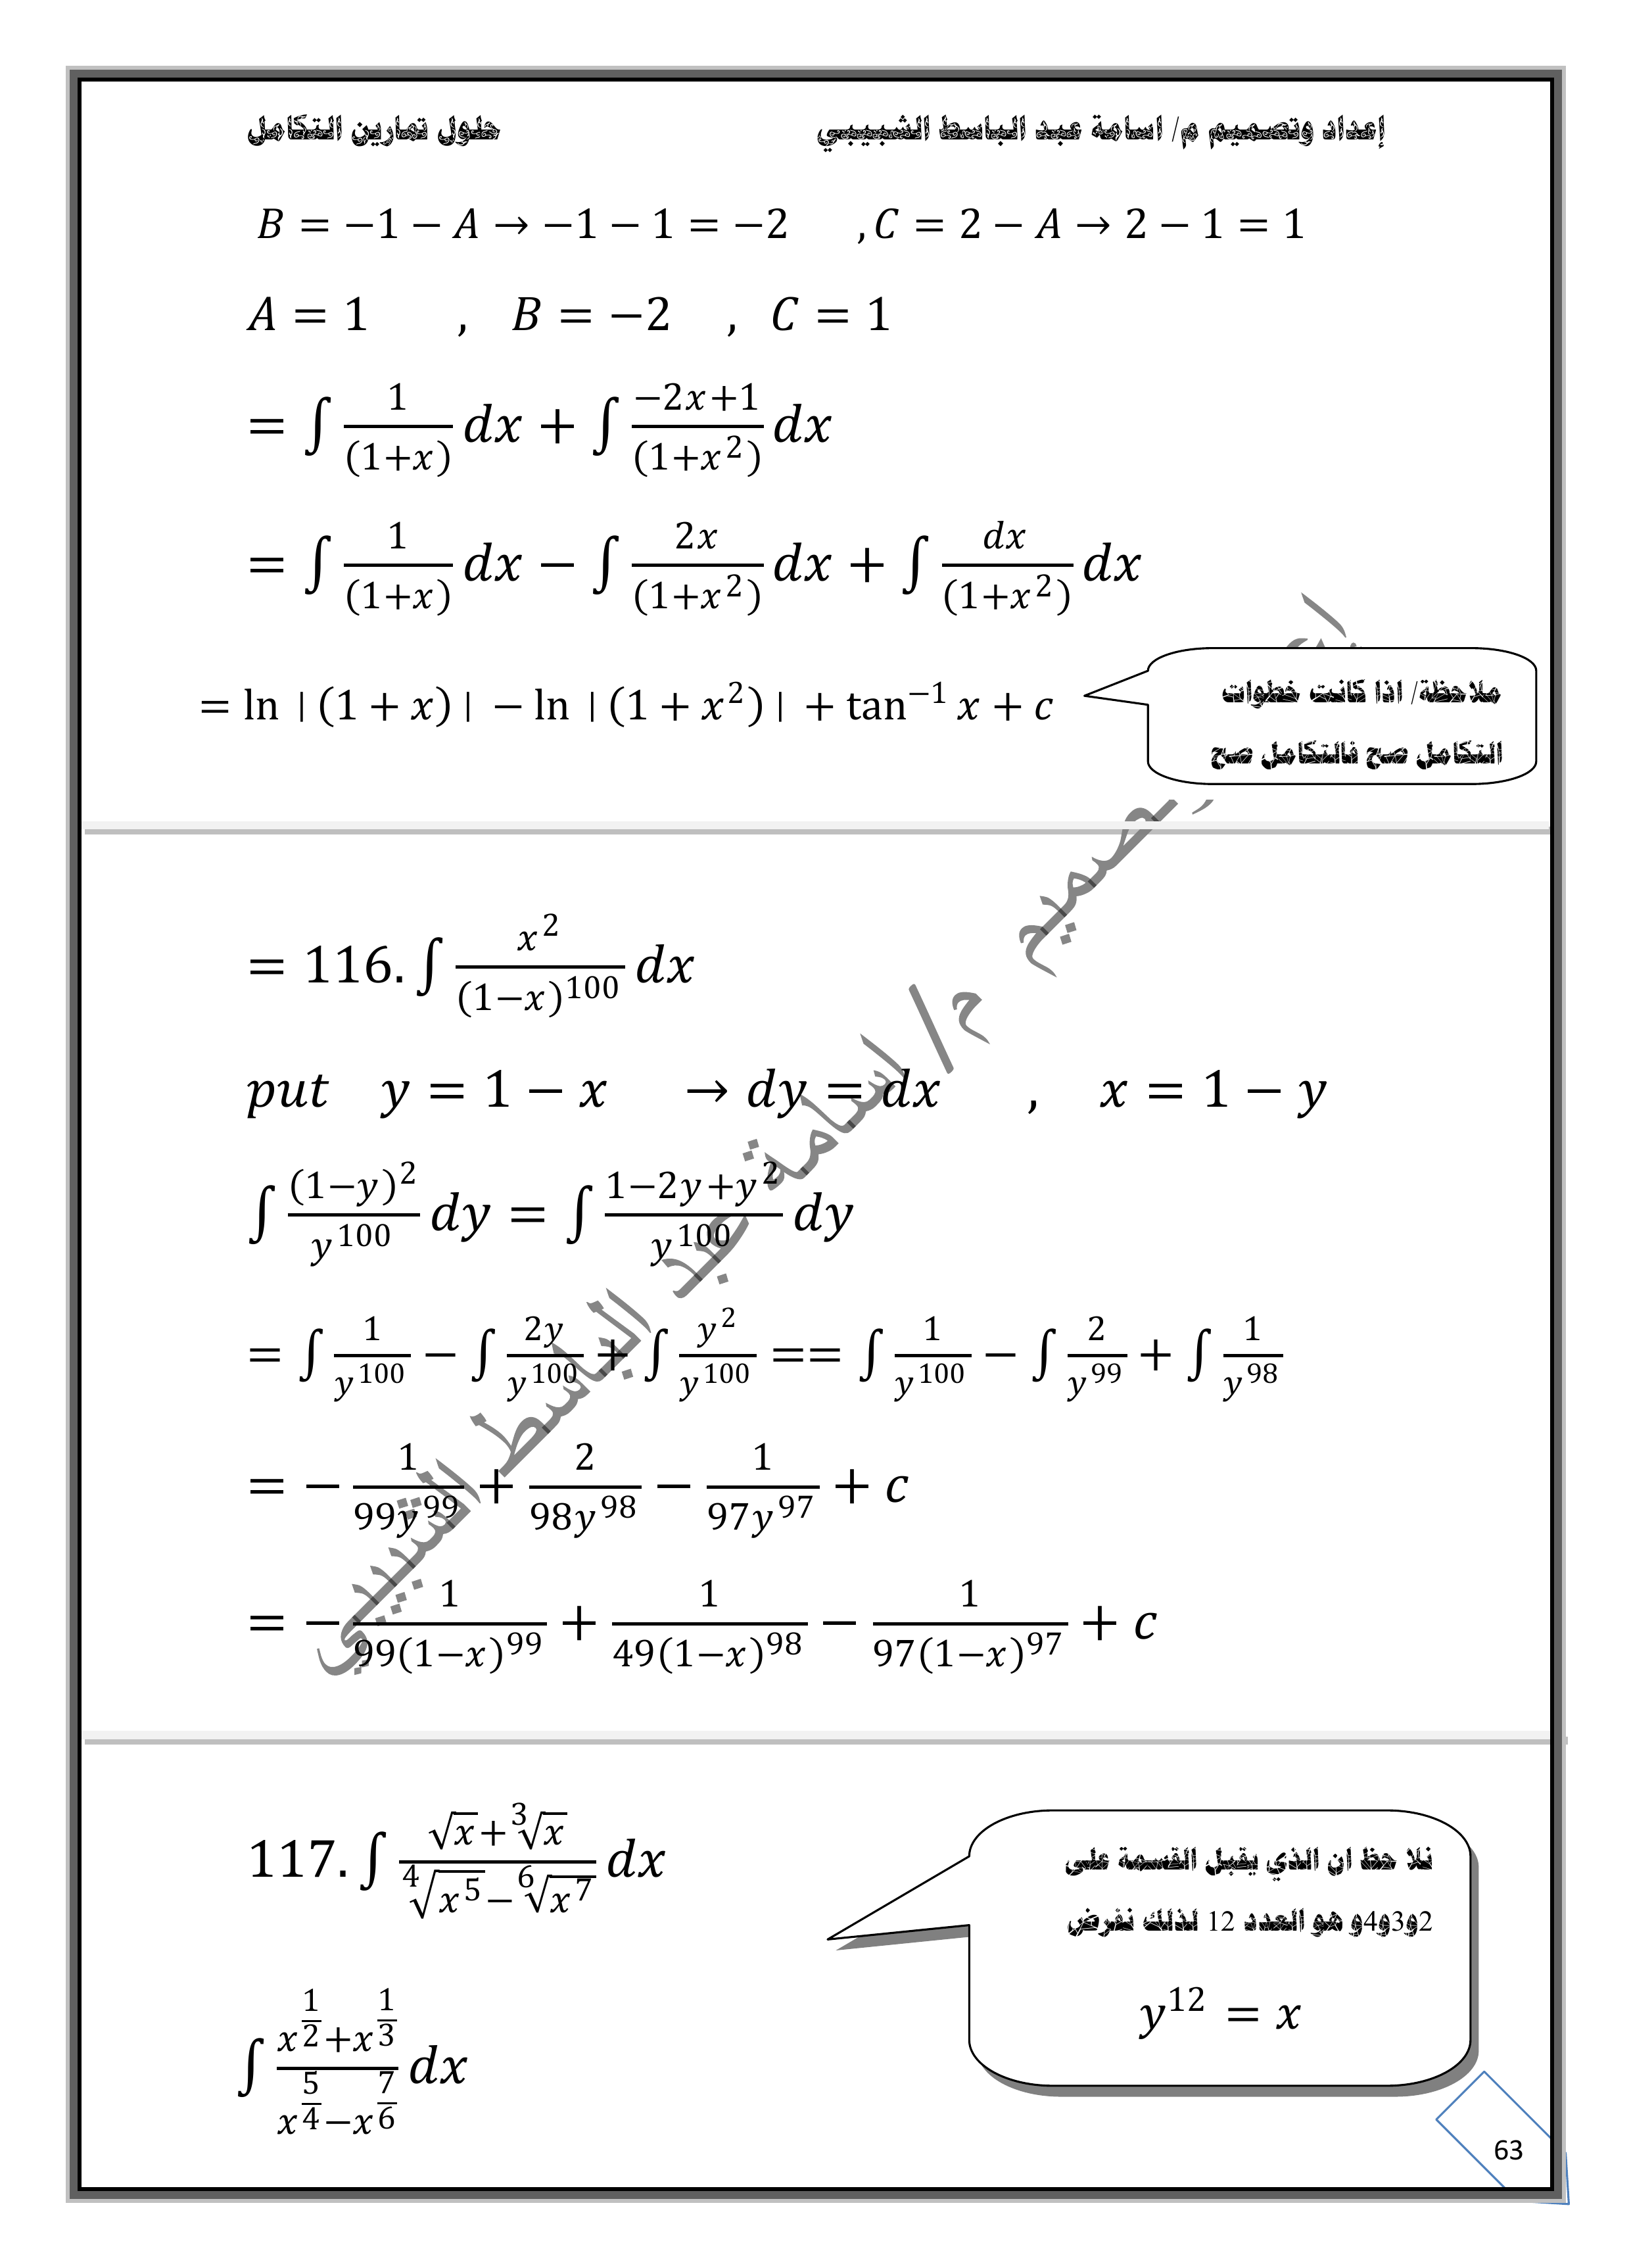 إعداد وتصميم م/ اسامة عبد الباسط الشبيبي حلول تمارين التكامل
B = −1 − A → −1 − 1 = −2 , C = 2 − A → 2 − 1 = 1
A = 1 , B = −2 , C = 1
= ∫ 1/(1+x) dx + ∫ (−2x+1)/(1+x²) dx
= ∫ 1/(1+x) dx − ∫ 2x/(1+x²) dx + ∫ dx/(1+x²) dx
= ln ∣(1 + x)∣ − ln ∣(1 + x²)∣ + tan⁻¹ x + c
ملاحظة/ اذا كانت خطوات
التكامل صح فالتكامل صح
= 116. ∫ x²/(1−x)¹⁰⁰ dx
put y = 1 − x → dy = dx , x = 1 − y
∫ (1−y)²/y¹⁰⁰ dy = ∫ (1−2y+y²)/y¹⁰⁰ dy
= ∫ 1/y¹⁰⁰ − ∫ 2y/y¹⁰⁰ + ∫ y²/y¹⁰⁰ == ∫ 1/y¹⁰⁰ − ∫ 2/y⁹⁹ + ∫ 1/y⁹⁸
= − 1/(99y⁹⁹) + 2/(98y⁹⁸) − 1/(97y⁹⁷) + c
= − 1/(99(1−x)⁹⁹) + 1/(49(1−x)⁹⁸) − 1/(97(1−x)⁹⁷) + c
117. ∫ (√x + ∛x)/(⁴√(x⁵) − ⁶√(x⁷)) dx
نلا حظ ان الذي يقبل القسمة على
2و3و4و هو العدد 12 لذلك نفرض
y¹² = x
∫ (x^(1/2) + x^(1/3))/(x^(5/4) − x^(7/6)) dx
63
م/ اسامة عبد الباسط الشبيبي